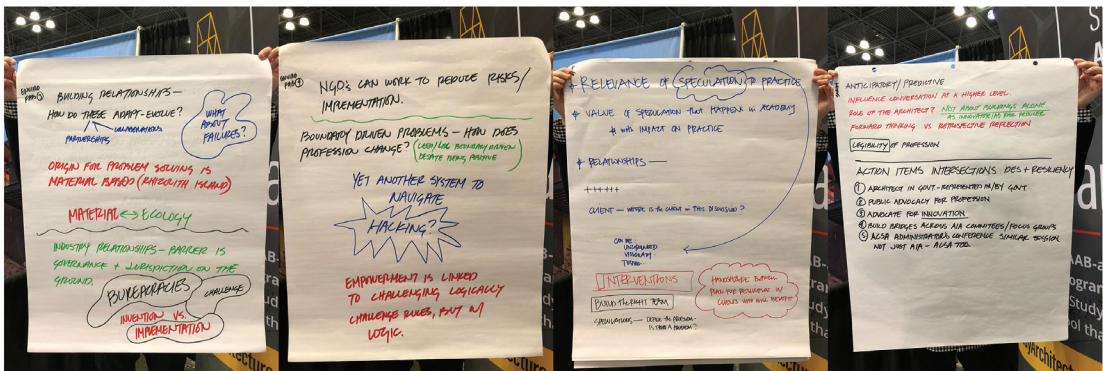 BUILDING RELATIONSHIPS—
HOW DO THESE ADAPT-EVOLVE?
PARTNERSHIPS
COLLABORATIONS
WHAT
ABOUT
FAILURES?
ORIGIN FOR PROBLEM SOLVING IS
MATERIAL BASED (RHIZOLITH ISLAND)
MATERIAL ↔ ECOLOGY
INDUSTRY RELATIONSHIPS — BARRIER IS
GOVERNANCE + JURISDICTION ON THE
GROUND.
BUREACRACIES
CHALLENGE
INVENTION VS.
IMPLEMENTATION
NGO's CAN WORK TO REDUCE RISKS/
IMPLEMENTATION.
BOUNDARY DRIVEN PROBLEMS — HOW DOES
PROFESSION CHANGE?
BOUNDARY DRIVEN
DESPITE BEING POSITIVE
YET ANOTHER SYSTEM TO
NAVIGATE
HACKING?
EMPOWERMENT IS LINKED
TO CHALLENGING LOGICALLY
CHALLENGE RULES, BUT W/
LOGIC.
RELEVANCE OF SPECULATION TO PRACTICE
VALUE OF SPECULATION THAT HAPPENS IN ACADEMY
WITH IMPACT ON PRACTICE
RELATIONSHIPS —
++++++
CLIENT — WHERE IS THE CLIENT IN THIS DISCUSSION?
CAN BE
VISIONARY
INTERVENTIONS
BUILD THE RIGHT TEAM
SPECULATIONS — DEFINE THE PROBLEM—
IS THERE A PROBLEM?
PLAN FOR RESILIENCE W/
CLIENTS WHO WILL BENEFIT
ANTICIPATORY/PREDICTIVE
INFLUENCE CONVERSATION AT A HIGHER LEVEL.
ROLE OF THE ARCHITECT? NOT ABOUT BUILDINGS ALONE.
AS INNOVATOR/AS RISK REDUCER
FORWARD THINKING VS RETROSPECTIVE REFLECTION
LEGIBILITY OF PROFESSION
ACTION ITEMS INTERSECTIONS DES + RESILIENCY
1 ARCHITECT IN GOVT.-REPRESENTED IN/BY GOVT
2 PUBLIC ADVOCACY FOR PROFESSION
3 ADVOCATE FOR INNOVATION
4 BUILD BRIDGES ACROSS AIA COMMITEES/FOCUS GROUPS
5 ACSA ADMINISTRATORS CONFERENCE SIMILAR SESSION
NOT JUST AIA - ACSA TOO.